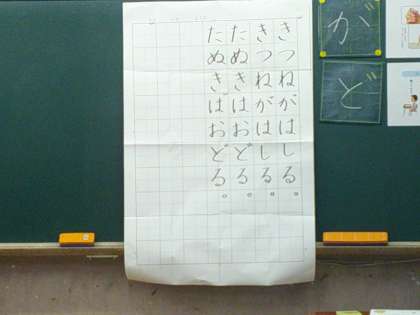 きつねがはしる。
きつねがはしる。
たぬきはおどる。
たぬきはおどる。
が
ど